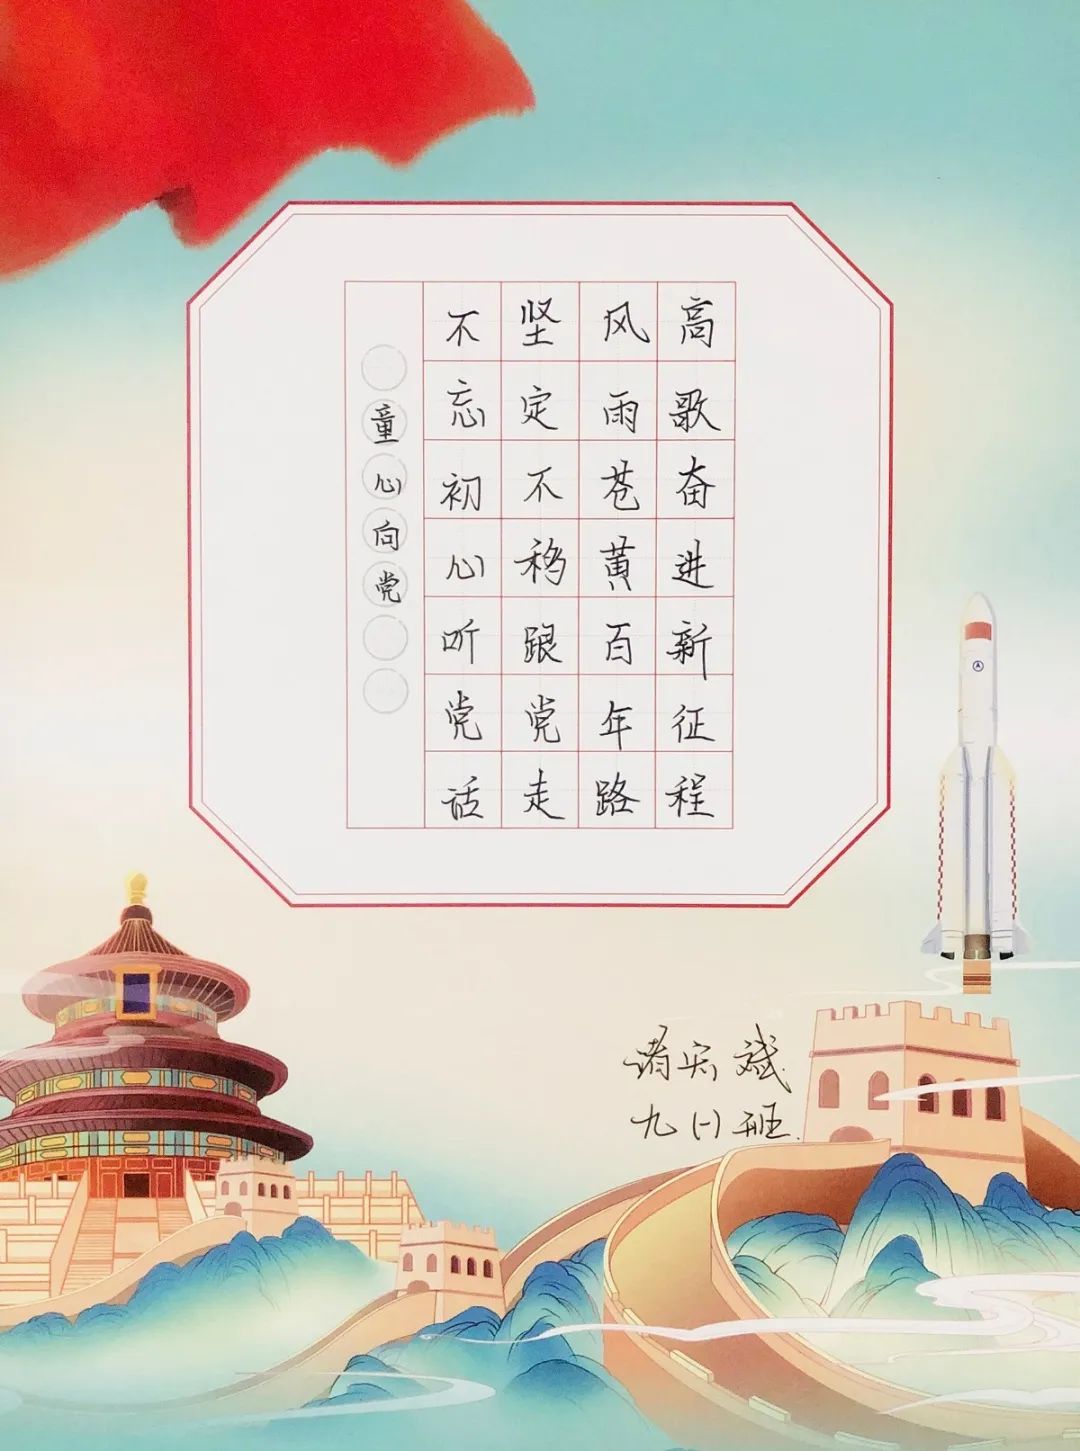 童心向党
不忘初心听党话
坚定不移跟党走
风雨苍黄百年路
高歌奋进新征程
诸 斌
九(一)班